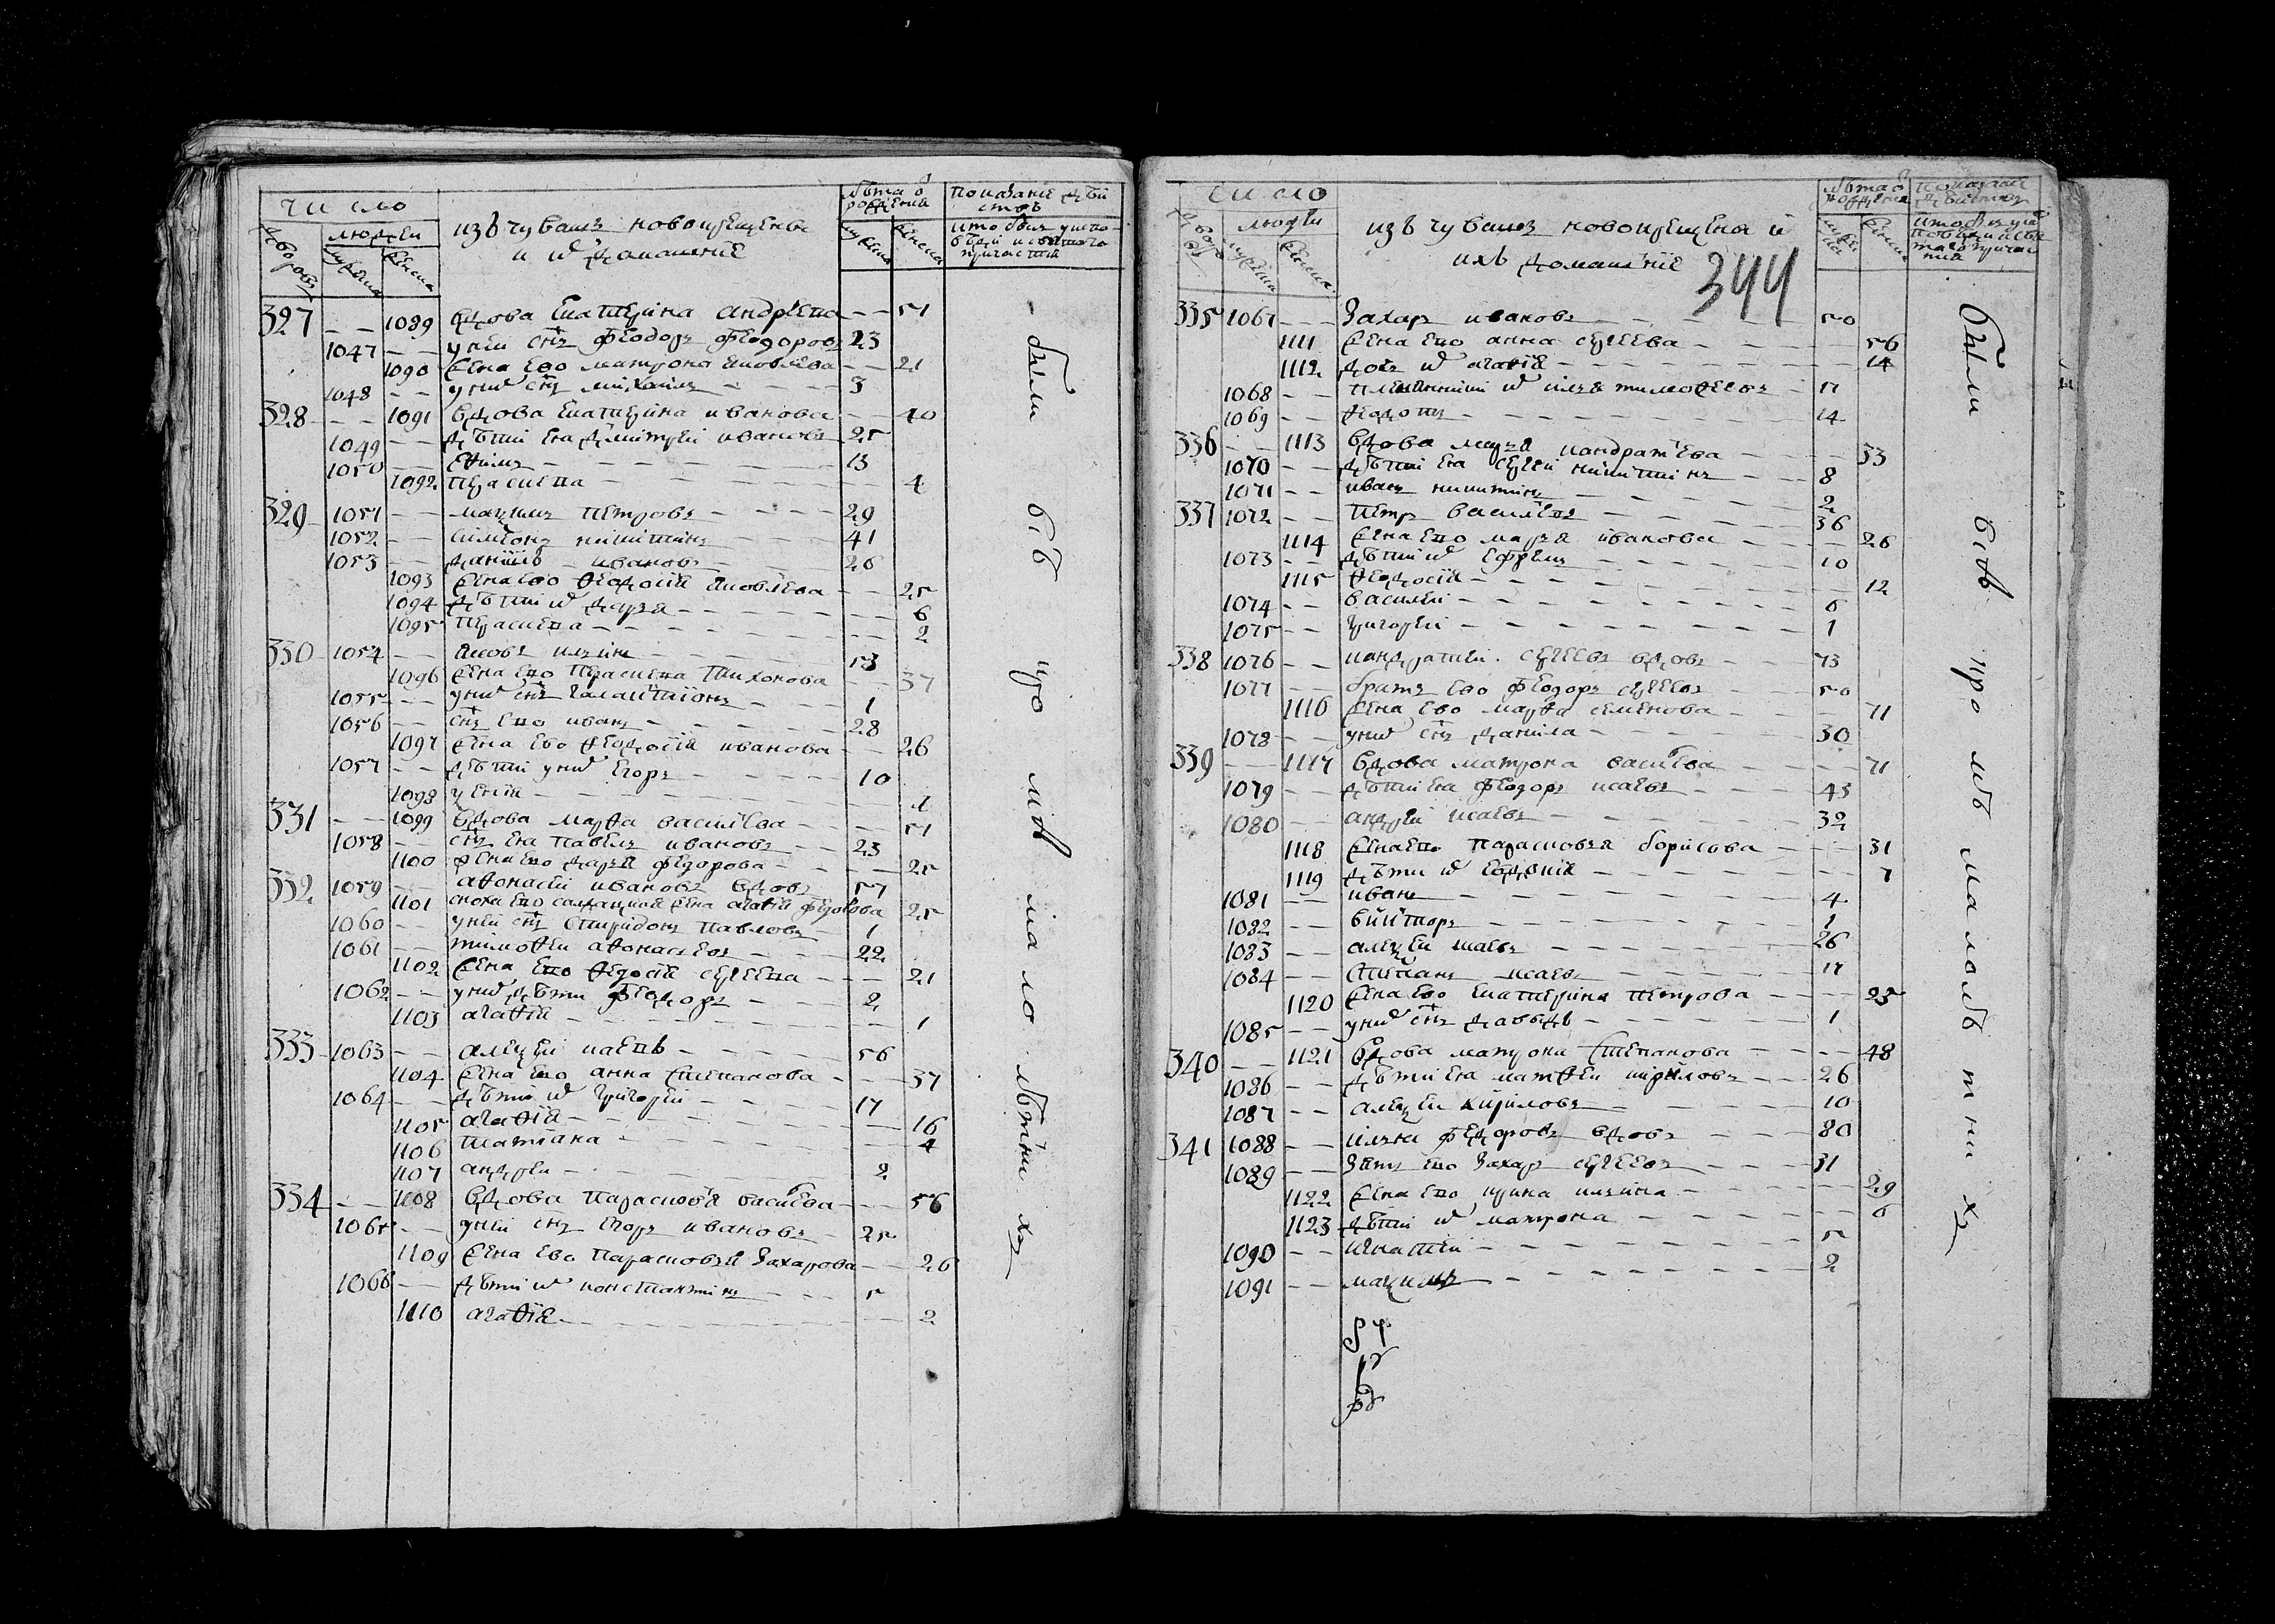 число
дворовъ
людеи
мужеска
женска
изъ чувашъ новокрещены
и их домашние
лѣта от рождения
мужеска
женска
показание дѣйствъ
кто был у исповеди и святого причастия
327 1089 вдова екатерина андрѣева 51
1047 у неи сн҃ъ феодоръ феодоровъ 23
1090 жена ево матрона яковлева 21
1048 у них сн҃ъ михаилъ 3
328 1091 вдова екатерина иванова 40
1049 дѣти ея димитреи ивановъ 25
1050 ефимъ 13
1092 праскева 4
329 1051 максимъ петровъ 29
1052 симеонъ никитинъ 41
1053 данилъ ивановъ 26
1093 жена ево феодосия яковлева 25
1094 дѣти их дарья 6
1095 праскева 2
330 1054 яковъ ильинъ 53
1096 жена ево праскева тихонова 37
1055 у них сн҃ъ галактионъ 1
1056 сн҃ъ ево иванъ 28
1097 жена ево феодосия иванова 26
1057 дѣти у них егоръ 10
1098 ксения 4
331 1099 вдова марфа василева 51
1058 сн҃ъ ея павелъ ивановъ 23
1100 жена ево дарья федорова 25
332 1059 афонасеи ивановъ вдовъ 57
1101 сноха ево салдацкая жена агафия федорова 25
1060 у неи сн҃ъ спиридонъ павловъ 1
1061 тимофеи афонасьевъ 22
1102 жена ево федосия сергеева 21
1062 у них дѣти феодоръ 2
1103 агафия 1
333 1063 алексеи исаевъ 56
1104 жена ево анна степанова 37
1064 дѣти их григореи 17
1105 агафия 16
1106 татиана 4
1107 андреи 2
334 1108 вдова парасковья василева 56
1065 у неи сн҃ъ егоръ ивановъ 25
1109 жена ево парасковья захарова 26
1066 дѣти их константинъ 5
1110 агафия 2
были всѣ кромѣ малолѣтних
число
дворовъ
людеи
мужеска
женска
изъ чувашъ новокрещены и
ихъ домашние
344
лѣта от рождения
показание дѣйствъ
335 1067 захаръ ивановъ 50
1111 жена ево анна сергеева 56
1112 дочь их агафия 14
1068 племянники их илья тимофеевъ 17
1069 федотъ 14
336 1113 вдова марья кандратева 33
1070 дѣти ея сергеи никитинъ 8
1071 иванъ никитинъ 2
337 1072 петръ василевъ 36
1114 жена ево марья иванова 26
1073 дѣти их ефремъ 10
1115 феодосия 12
1074 василеи 6
1075 григореи 1
338 1076 кандратеи сергеевъ вдовъ 73
1077 братъ ево феодоръ сергеевъ 50
1116 жена ево марфа семенова 71
1078 у них сн҃ъ данила 30
339 1117 вдова матрона василева 71
1079 дѣти ея феодоръ исаевъ 43
1080 андреи исаевъ 32
1118 жена ево парасковья борисова 31
1119 дѣти их евдокия 7
1081 иванъ 4
1082 викторъ 1
1083 алексеи исаевъ 26
1084 степанъ исаевъ 17
1120 жена ево екатерина петрова 25
1085 у них сн҃ъ давыдъ 1
340 1121 вдова матрона степанова 48
1086 дѣти ея матфеи кириловъ 26
1087 алексеи кириловъ 10
341 1088 илья федоровъ вдовъ 80
1089 зять ево захаръ сергеевъ 31
1122 жена ево ирина ильина 29
1123 дѣти их матрона 6
1090 игнатеи 5
1091 максимъ 2
были всѣ кромѣ малолѣтних